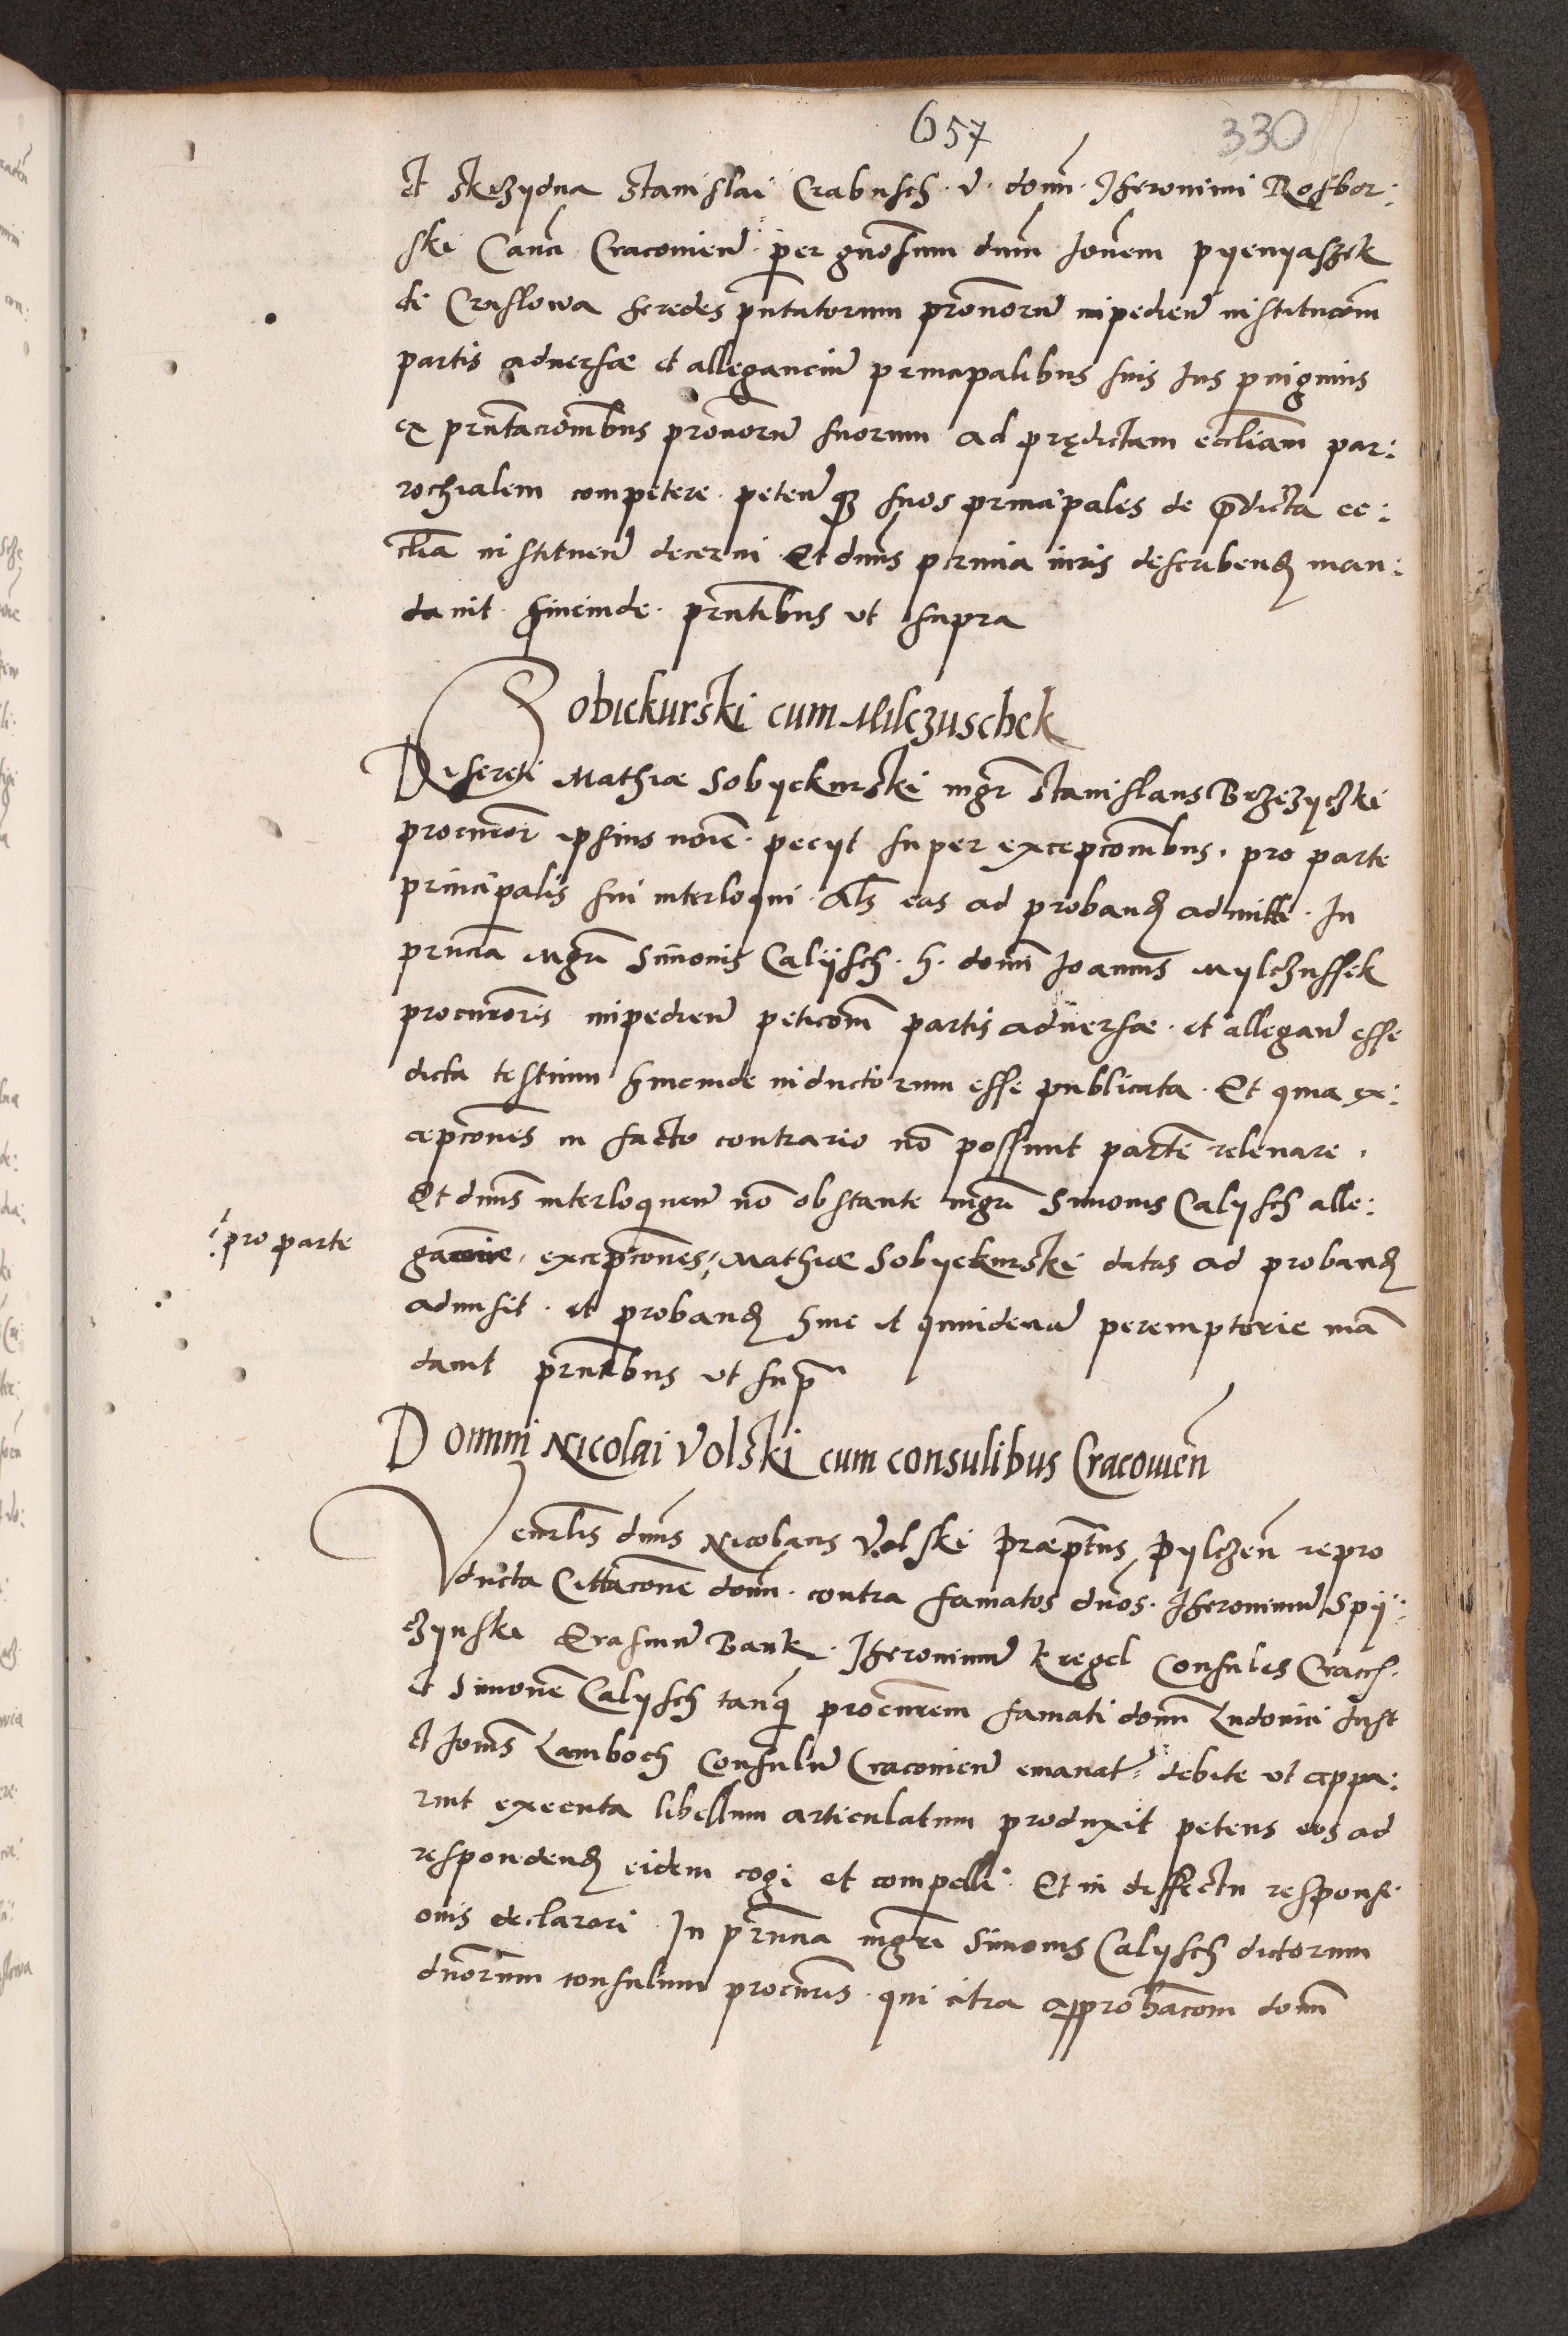 657
330
et Skrzydna Stanislai Crabusch. v. domn. Jheronimi Rosbor:
ski Canci Cracovien per gnosum dnm Jonem Pyenyaszek
de Cruslowa heredes pntatorum pronorum impedien institucom
partis adversæ et allegancium principalibus suis Jus pinguius
ex prntacionibus pronorum suorum ad prędictam eccliam par:
rochialem competere. peten q3 suos principales de predicta ec:
clia instituen decerni. Et dnus primia iuris describend man:
davit hincinde. prntibus ut supra
Sobiekurski cum Milczuschek
Discreti Mathiæ Sobyekurski mgr Stanislaus Brzezyczki
procurator ipsius noie. pecyt super excepconibus. pro parte
principalis sui interloqui. Als eas ad proband admitti. In
prncia Mgri Simonis Calijsch. h. domi Joannis Mylczussek
procuroris impedien peticom partis adversæ. et allegan esse
dicta testium hincinde inductorum esse publicata. Et quia ex:
cepcones in facto contrario no possunt parte relevare.
Et dnus interloquen no obstante mgri Simonis Calysch alle:
:pro parte
gacione, excepcones, Mathiæ Sobyekurski datas ad proband
admisit. et proband hinc et quindena peremptorie man
davit prntibus ut supra
Domini Nicolai Volski cum consulibus Cracovien
Venerlis dnus Nicolaus Volski Præptus Pylczen repro
ducta Cittacone domi. contra famatos dnos. Jheronimu Spij:
czynski Erasmu Bank. Jheronimu Kregel Consules Cracis.
et Simone Calysch tanq procurem famati domi Ludovici Just
et Jonis Lamboch Consulum Cracovien emanat. debite ut appa:
ruit executa libellum articulatum produxit petens eos ad
respondend eidem cogi et compelli. Et in deffectu responsi
onis declarari. In prncia mgri Simonis Calysch dictorum
dnorum consulum procuris. qui citra approbacom domi